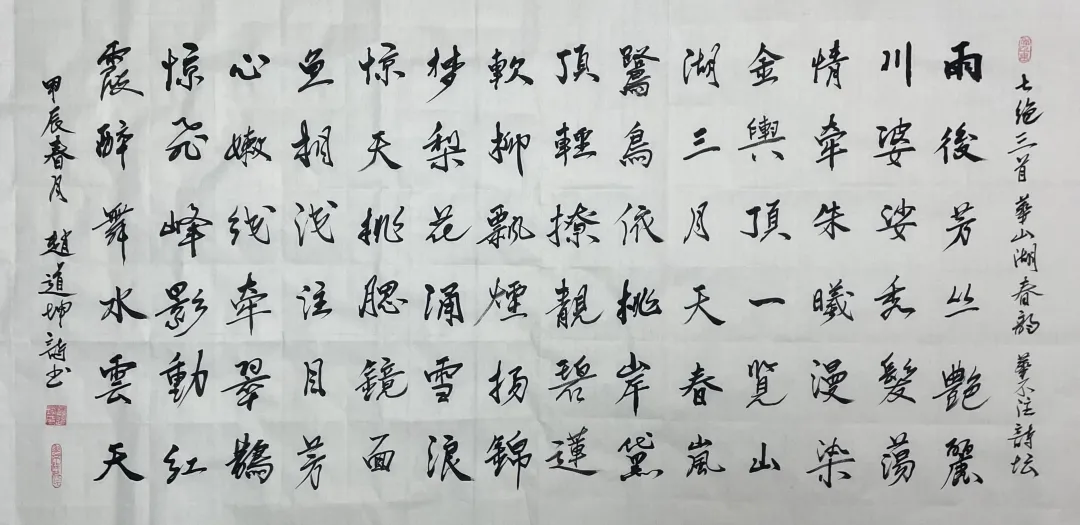 七绝三首 華山湖春韵 華不注詩坛
雨後芳丛艳麗
川婆娑秀髮蕩
情牽朱曦漫染
金輿頂一览山
湖三月天春嵐
鷺鳥依桃岸黛
頂輕撩靚碧蓮
軟柳飄煙揚錦
梦梨花涌雪浪
惊天桃腮鏡面
鱼翔浅注目芳
心嫩线牽翠鵲
惊飛峰影動红
霞醉舞水雲天
甲辰春月 趙道坤詩书